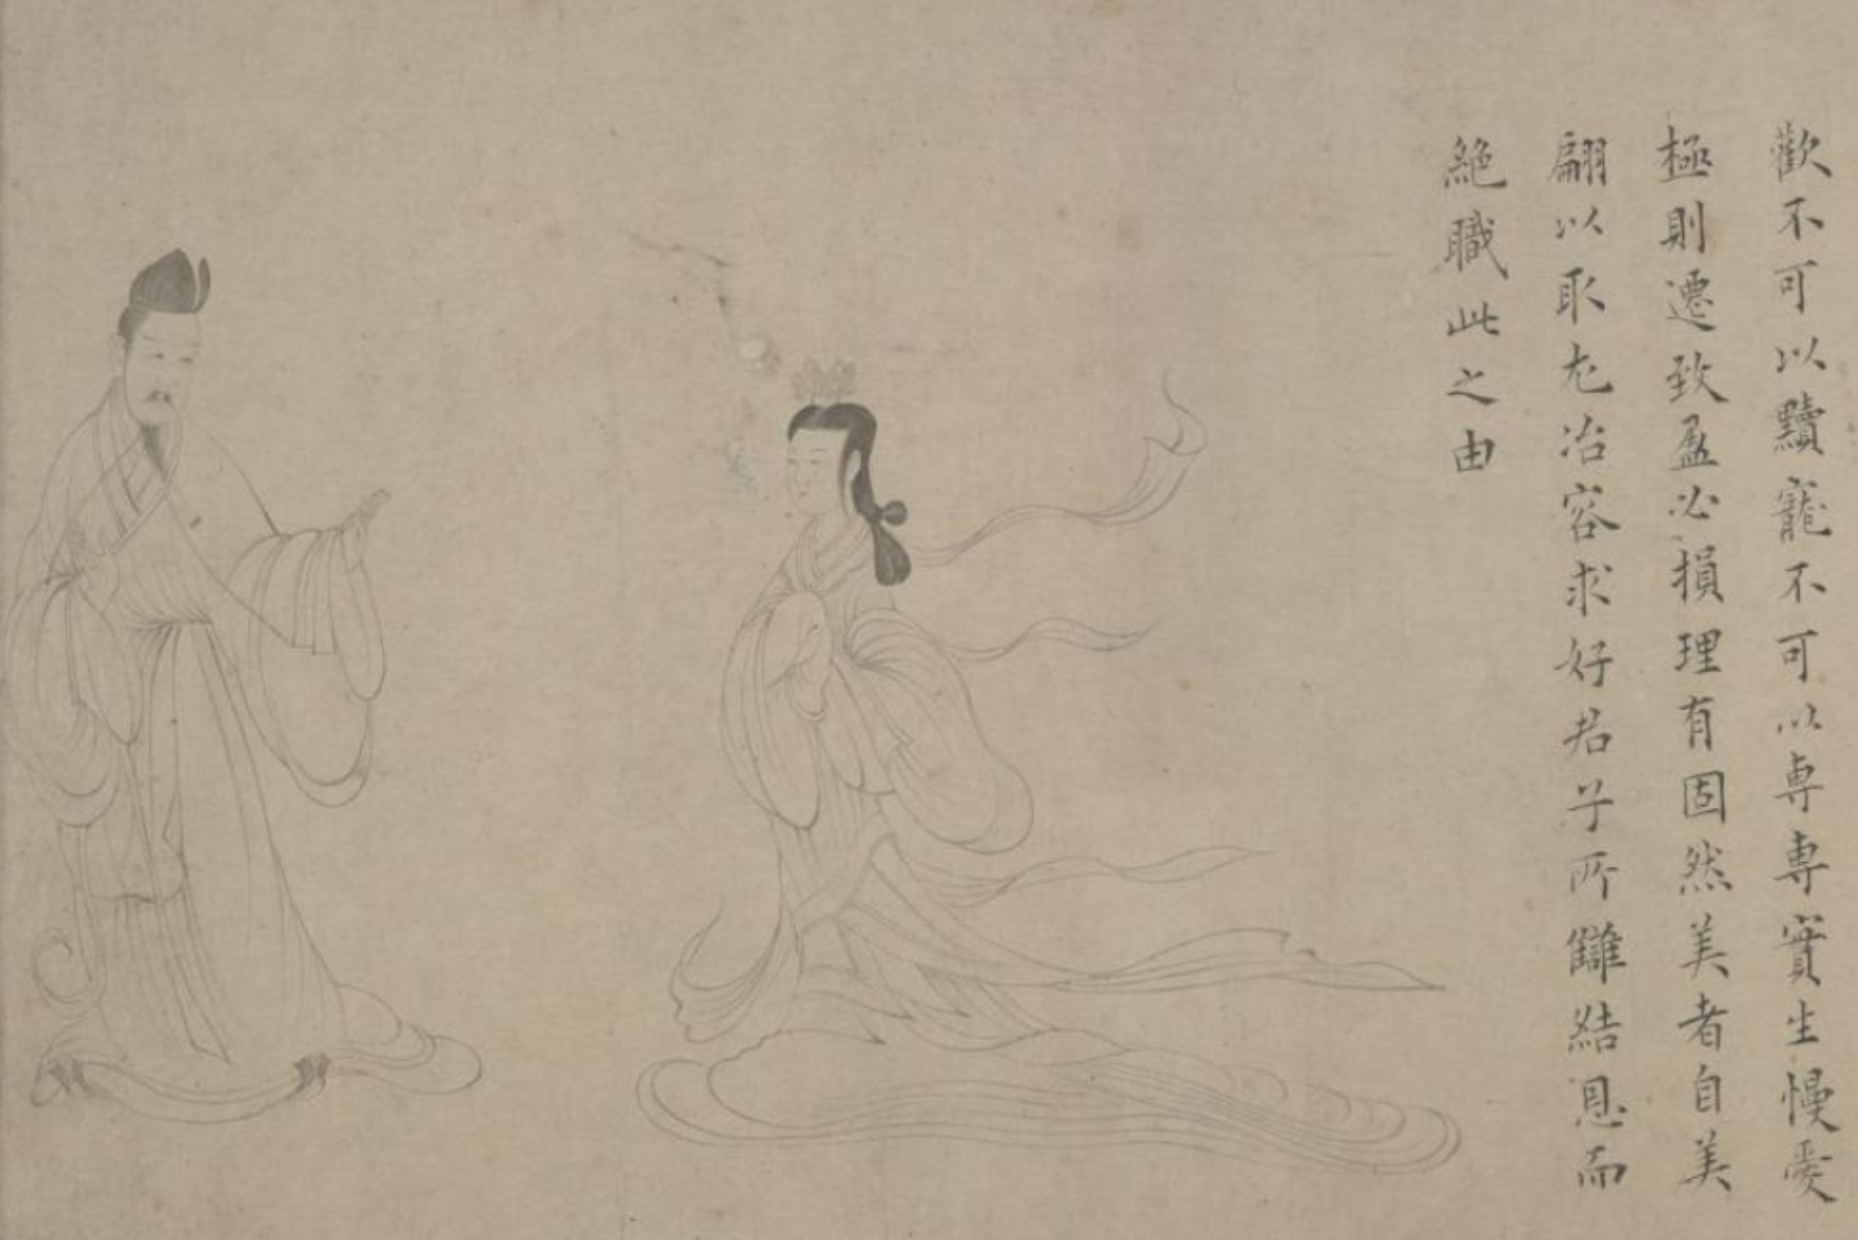 歡不可以黷寵不可以専専實生慢愛
極則遷致盈必損理有固然美者自美
翩以取尤冶容求好君子所讎結恩而
絶職此之由